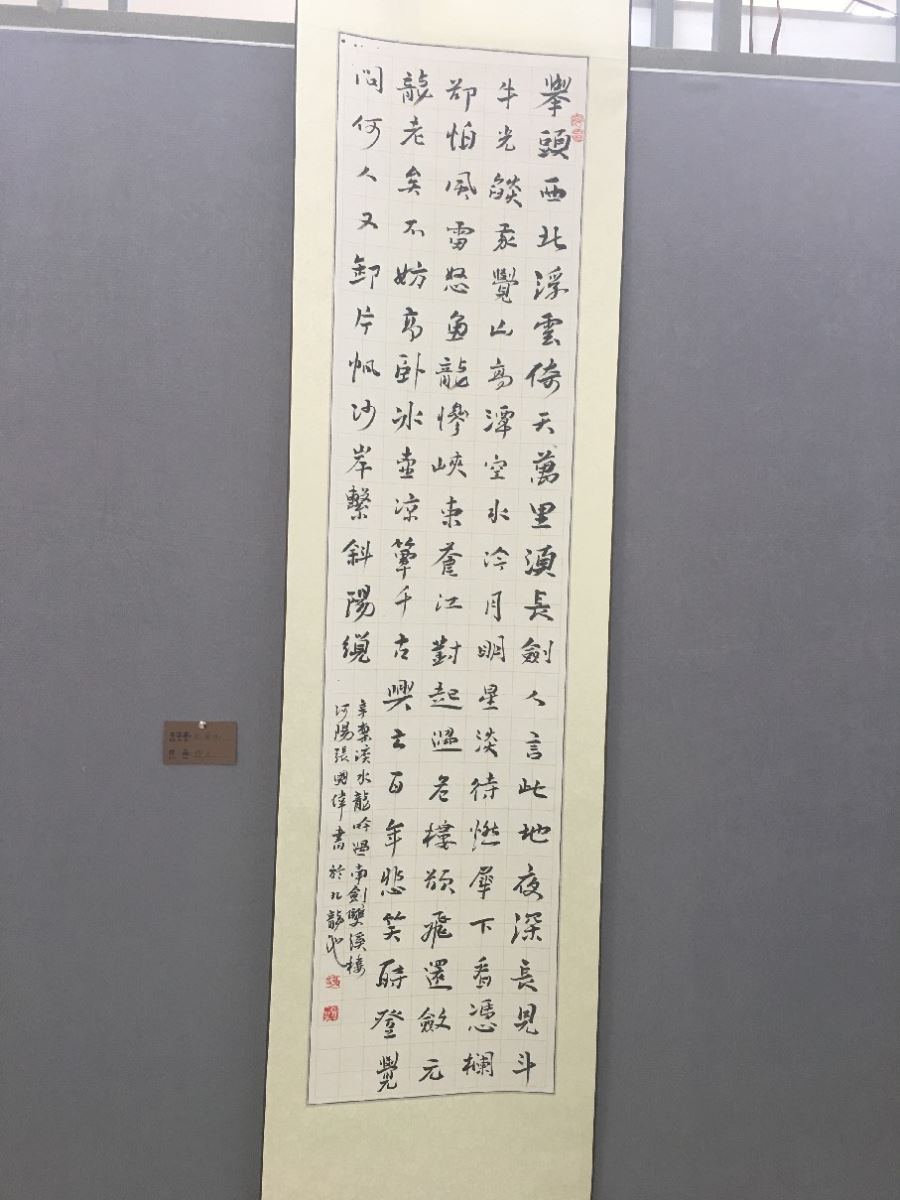 舉頭西北浮雲倚天萬里須長劍人言此地夜深長見斗
牛光燄我覺山高潭空水冷月明星淡待燃犀下看憑欄
卻怕風雷怒魚龍慘峽束蒼江對起過危樓欲飛還斂元
龍老矣不妨高卧冰壺凉簟千古興亡百年悲笑時登覽
問何人又卸片帆沙岸繫斜陽纜
辛棄疾水龍吟過南劍雙溪樓
河陽張國偉書於九龍池